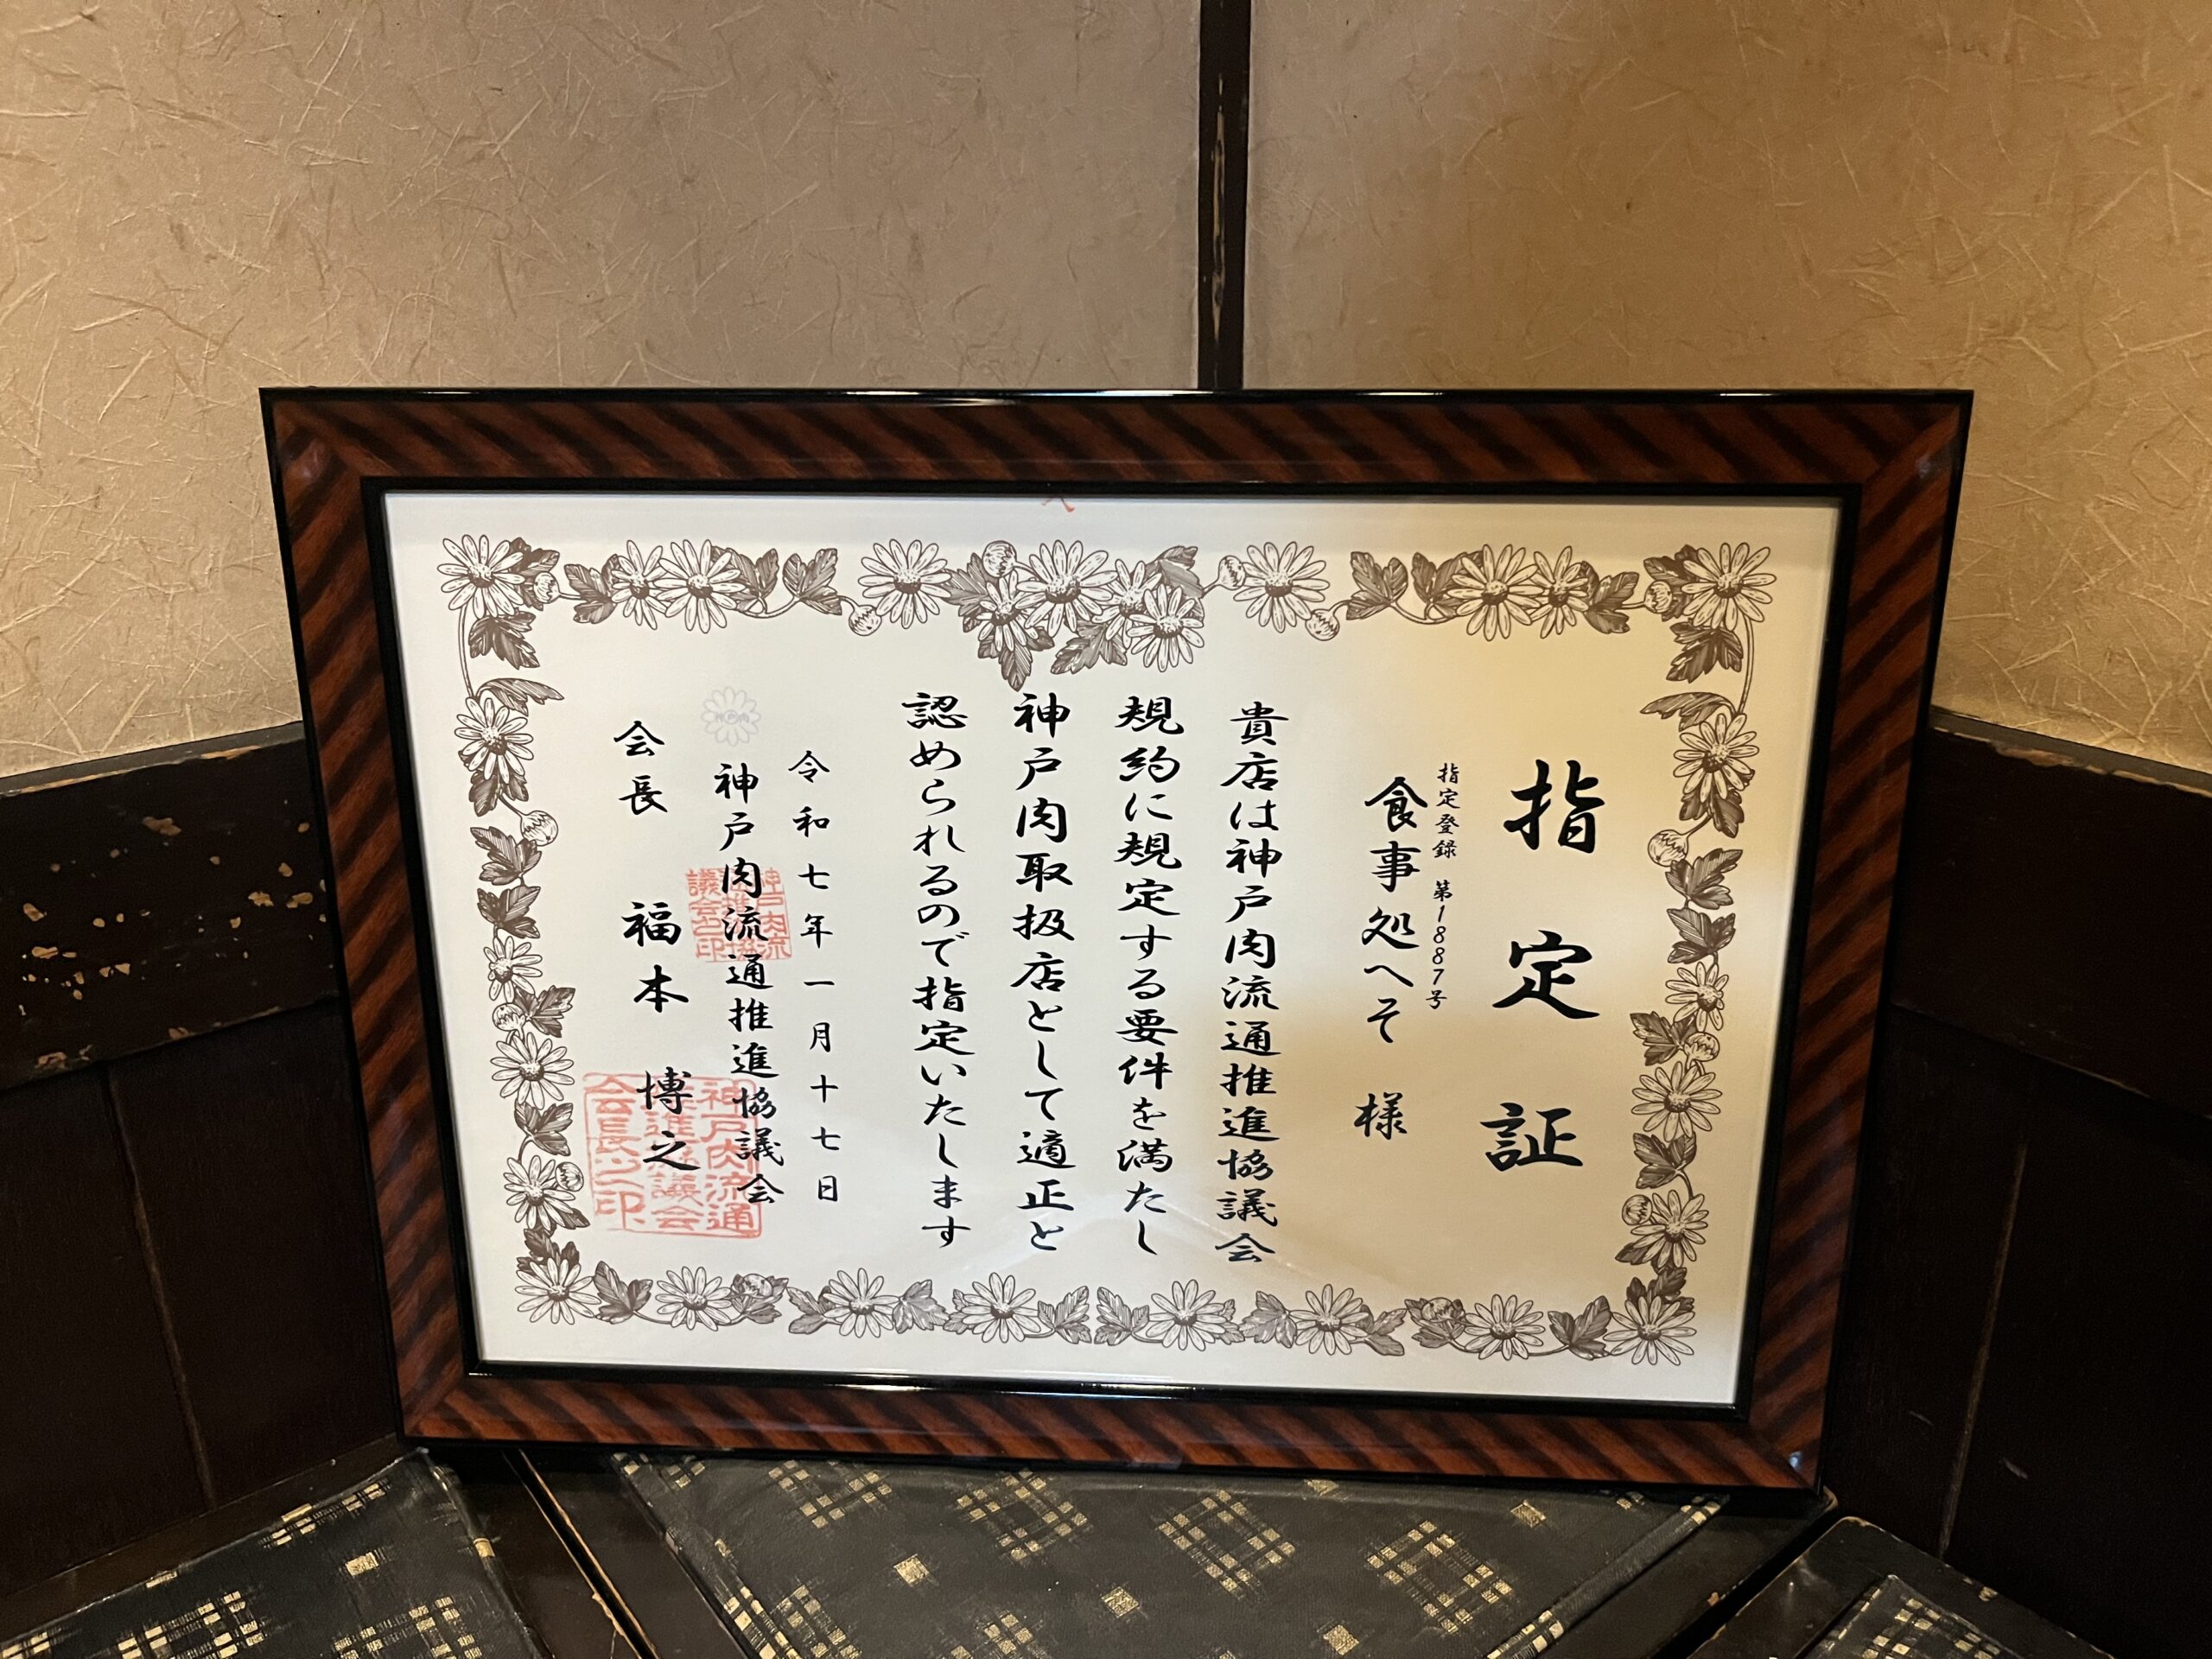 指定証
指定登録 第1887号
食事処へそ 様
貴店は神戸肉流通推進協議会
規約に規定する要件を満たし
神戸肉取扱店として適正と
認められるので指定いたします
令和七年一月十七日
神戸肉流通推進協議会
会長 福本 博之
神戸肉流通推進協議会之印
神戸肉流通推進協議会会長之印